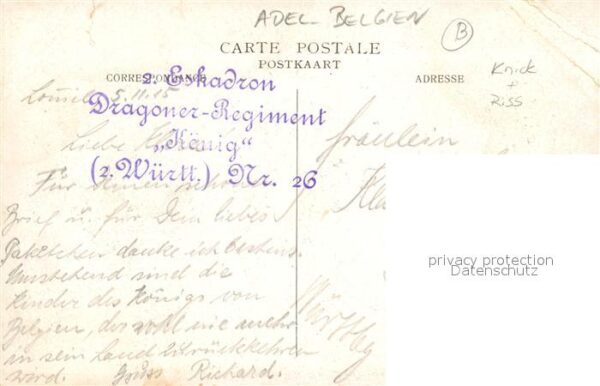 ADEL-BELGIEN
B
CARTE POSTALE
POSTKAART
CORRESPONDANCE
ADRESSE
Knick
+
Riss
2. Eskadron
5.11.15
Dragoner-Regiment
Liebe
„König“
Fräulein
(2. Württ.) Nr. 26
Für
Brief u. für Dein liebes
Paketchen danke ich bestens.
Umstehend sind die
Kinder des Königs von
Belgien, der wohl nie mehr
in sein Land zurückkehren
wird. Gruss Richard.
privacy protection
Datenschutz